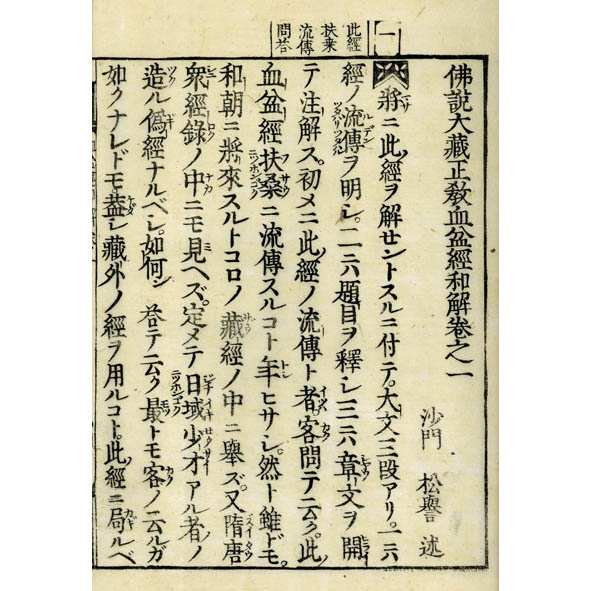 一
此經
扶桒
流傳
問荅
佛說大藏正敎血盆經和解卷之一
沙門 松譽 述
將ニ此經ヲ解セントスルニ付テ。大文三段アリ。一ニハ
經ノ流傳ヲ明シ。二ニハ題目ヲ釋シ三ニハ章文ヲ開
テ注解ス。初メニ此經ノ流傳ト者。客問テ云ク。此
血盆經扶桑ニ流傳スルコト年ヒサシ。然ト雖ドモ。
和朝ニ將來スルトコロノ藏經ノ中ニ舉ズ。又隋唐
衆經錄ノ中ニモ見ヘズ。定メテ日域少オアル者ノ
造ル僞經ナルベシ。如何シ 荅テ云ク最トモ客ノ云ルガ
如クナレドモ。葢シ藏外ノ經ヲ用ルコト。此經ニ局ルベ